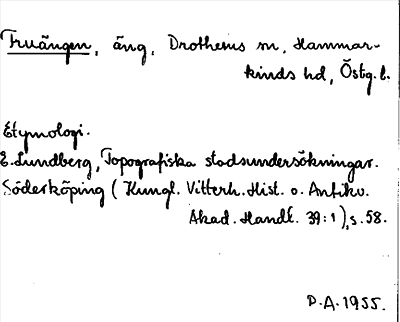 Fruängen, äng, Drothems sn, Hammar-
kinds hd, Östg. l.
Etymologi.
E. Lundberg, Topografiska stadsundersökningar.
Söderköping (Kungl. Vitterh. Hist. o. Antikv.
Akad. Handl. 39:1), s. 58.
P.A. 1955.